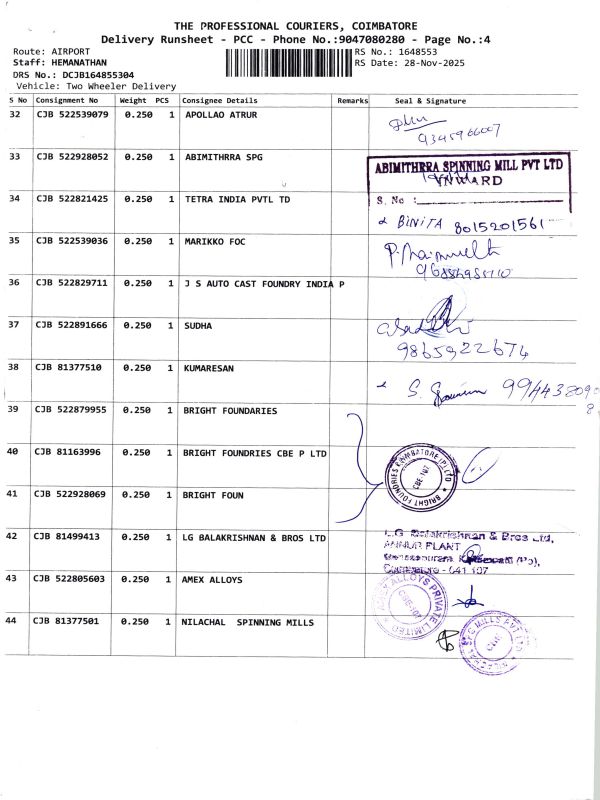 THE PROFESSIONAL COURIERS, COIMBATORE
Delivery Runsheet - PCC - Phone No.:9047080280 - Page No.:4
Route: AIRPORT
Staff: HEMANATHAN
DRS No.: DCJB164855304
Vehicle: Two Wheeler Delivery
RS No.: 1648553
RS Date: 28-Nov-2025
S No Consignment No Weight PCS Consignee Details Remarks Seal & Signature
32 CJB 522539079 0.250 1 APOLLAO ATRUR
9345966007
33 CJB 522928052 0.250 1 ABIMITHRRA SPG
ABIMITHRRA SPINNING MILL PVT LTD
INWARD
S. No :
34 CJB 522821425 0.250 1 TETRA INDIA PVTL TD
BINITA 8015201561
35 CJB 522539036 0.250 1 MARIKKO FOC
36 CJB 522829711 0.250 1 J S AUTO CAST FOUNDRY INDIA P
37 CJB 522891666 0.250 1 SUDHA
9865922674
38 CJB 81377510 0.250 1 KUMARESAN
S.
39 CJB 522879955 0.250 1 BRIGHT FOUNDARIES
40 CJB 81163996 0.250 1 BRIGHT FOUNDRIES CBE P LTD
BRIGHT FOUNDRIES COIMBATORE (P) LTD
CBE-107
41 CJB 522928069 0.250 1 BRIGHT FOUN
42 CJB 81499413 0.250 1 LG BALAKRISHNAN & BROS LTD
L.G Balakrishnan & Bros Ltd,
ANNUR PLANT
Coimbatore - 641 107
43 CJB 522805603 0.250 1 AMEX ALLOYS
ALLOYS PRIVATE LIMITED
44 CJB 81377501 0.250 1 NILACHAL SPINNING MILLS
MILLS PVT LTD